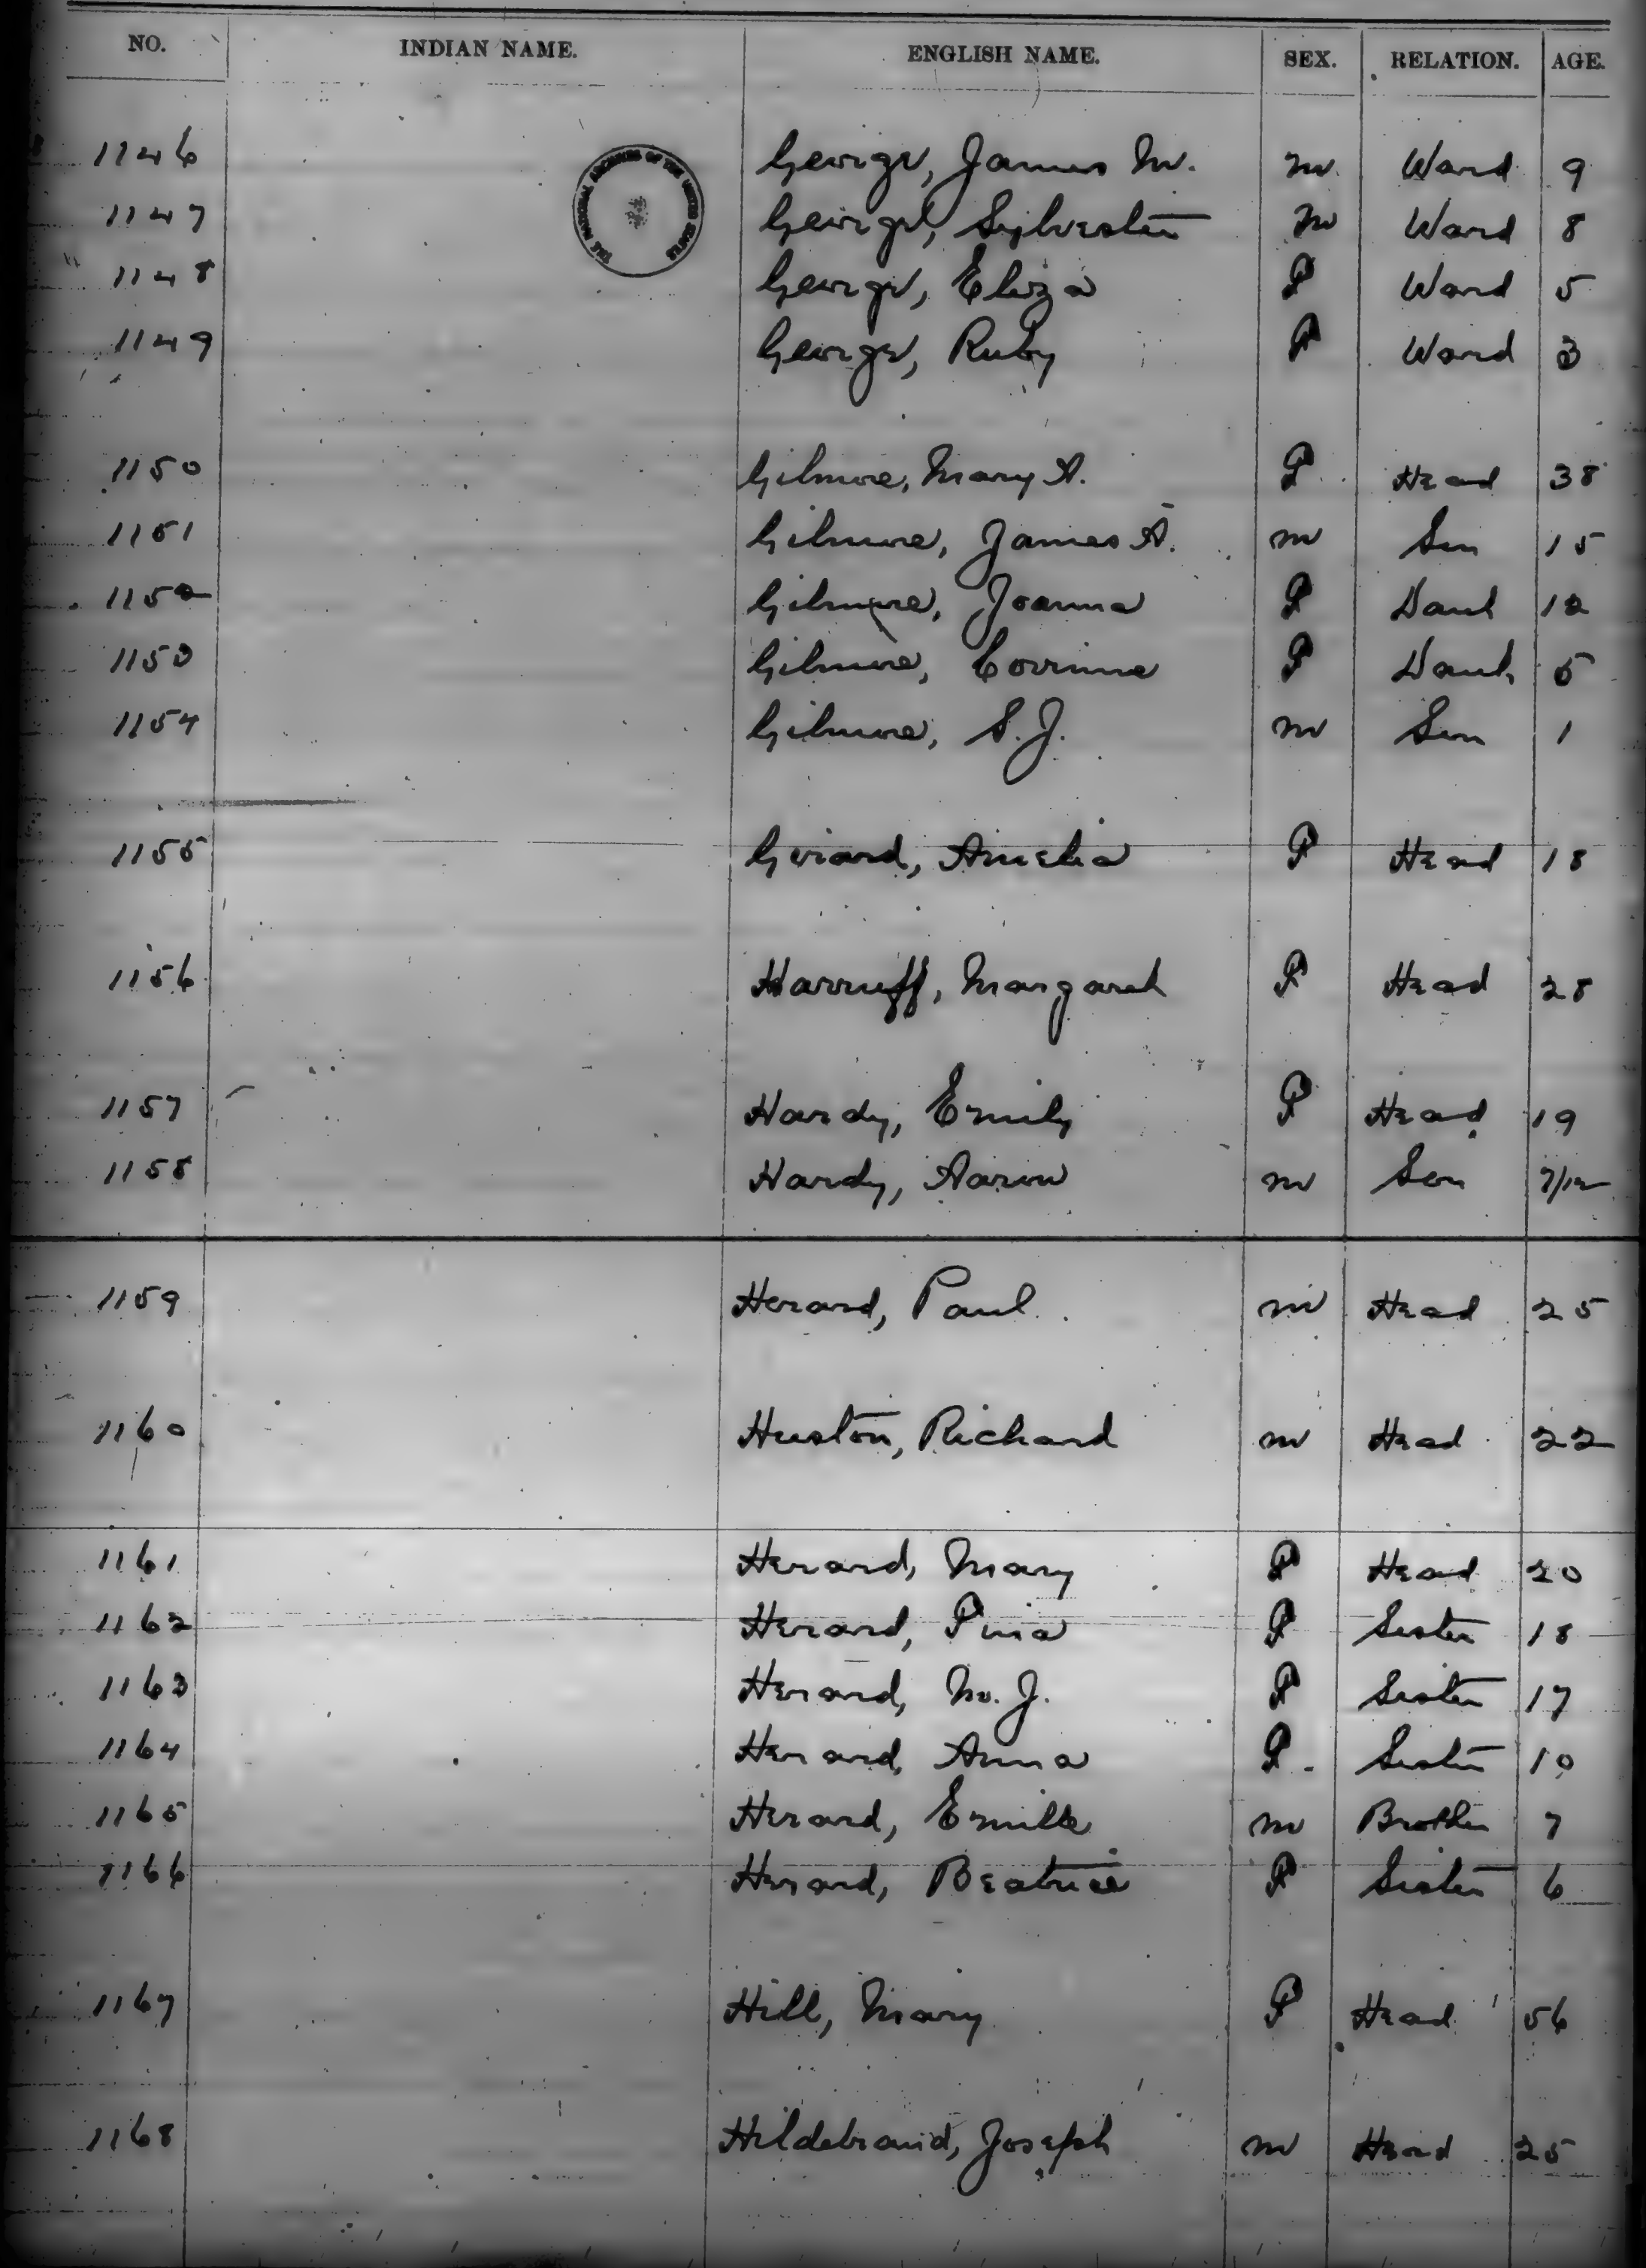 NO. INDIAN NAME. ENGLISH NAME. SEX. RELATION. AGE.
THE NATIONAL ARCHIVES OF THE UNITED STATES
1146 George, James M. M Ward 9
1147 George, Sylvester M Ward 8
1148 George, Eliza F Ward 5
1149 George, Ruby F Ward 3
1150 Gilmore, Mary A. F Head 38
1151 Gilmore, James A. M Son 15
1152 Gilmore, Joanna F Dauh 12
1153 Gilmore, Corrinne F Dauh 5
1154 Gilmore, S. J. M Son 1
1155 Girard, Amelia F Head 18
1156 Harruff, Margaret F Head 28
1157 Hardy, Emily F Head 19
1158 Hardy, Aaron M Son 7/12
1159 Herard, Paul M Head 25
1160 Huston, Richard M Head 22
1161 Herard, Mary F Head 20
1162 Herard, Pina F Sister 18
1163 Herard, M. J. F Sister 17
1164 Herard, Anna F Sister 10
1165 Herard, Emille M Brother 7
1166 Herard, Beatrice F Sister 6
1167 Hill, Mary F Head 56
1168 Hildebrand, Joseph M Head 25